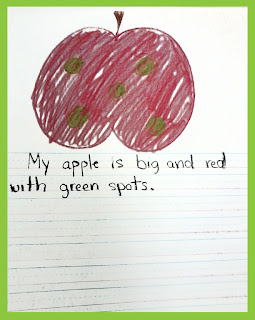 My apple is big and red
with green spots.